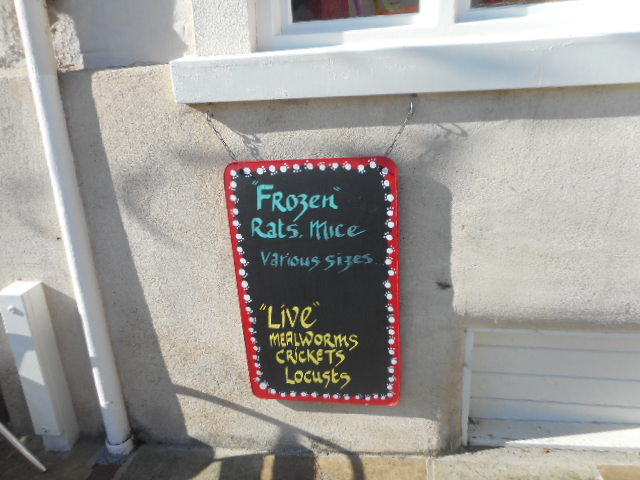 "Frozen"
Rats. Mice
Various sizes
"Live"
MEALWORMS
CRICKETS
Locusts